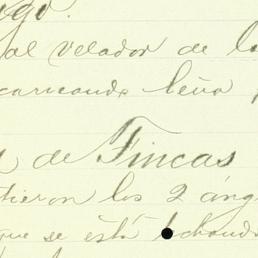 igo.
al velador de la
carreando leña
de Fincas
tieron los 2 áng
que se está echando